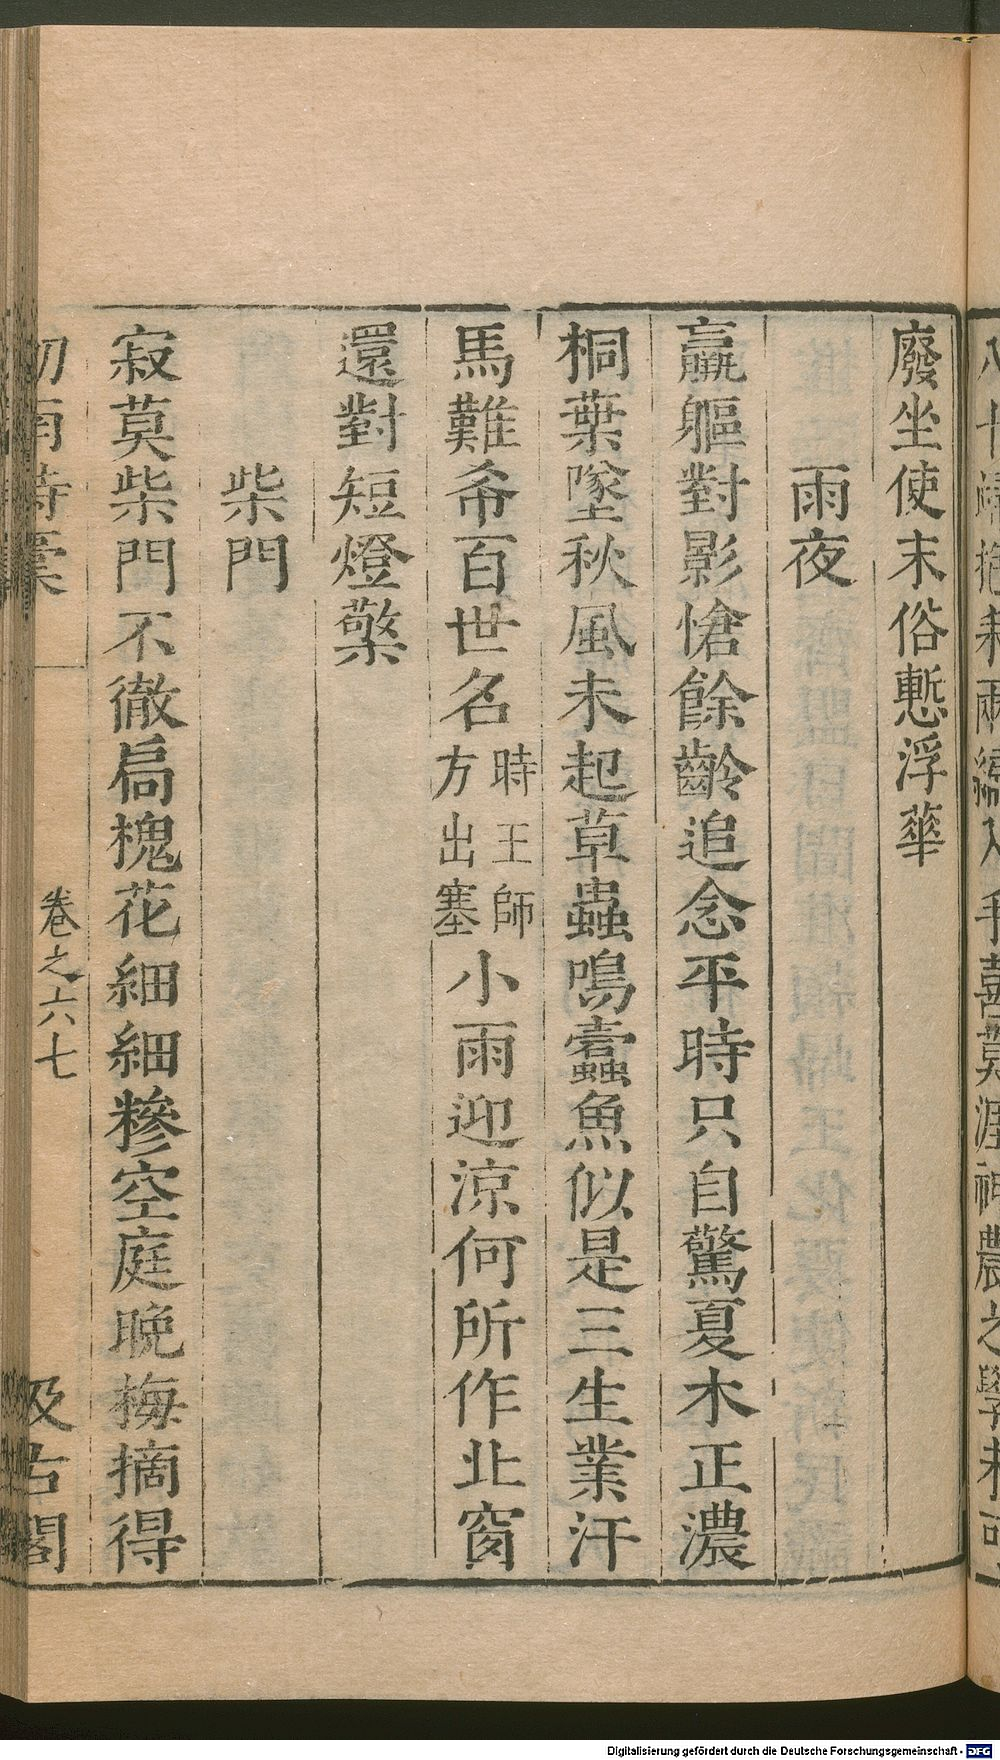 廢坐使末俗慙浮華
雨夜
羸軀對影愴餘齡追念平時只自驚夏木正濃
桐葉墜秋風未起草蟲鳴蠹魚似是三生業汗
馬難希百世名時王師方出塞小雨迎涼何所作北窗
還對短燈檠
柴門
寂莫柴門不徹扃槐花細細糝空庭晚梅摘得
卷之六七
汲古閣
Digitalisierung gefördert durch die Deutsche Forschungsgemeinschaft - DFG